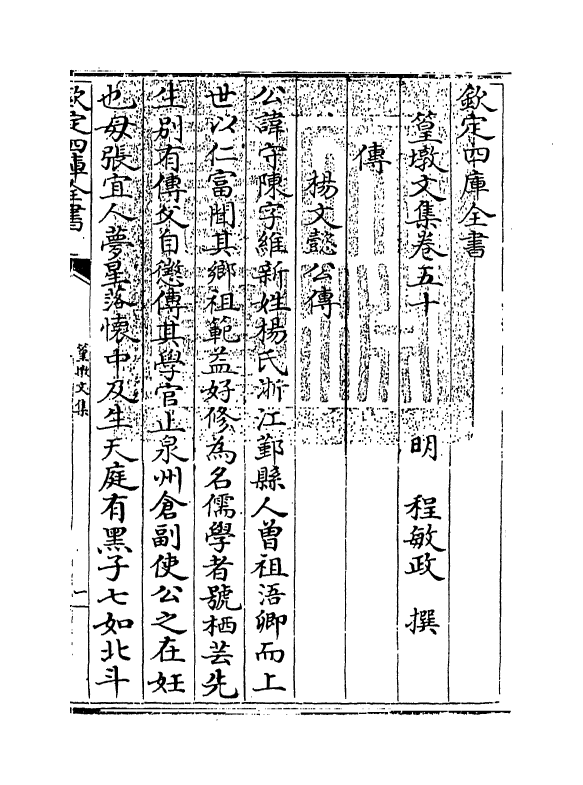 欽定四庫全書
篁墩文集卷五十
明 程敏政 撰
傳
楊文懿公傳
公諱守陳字維新姓楊氏浙江鄞縣人曾祖浯卿而上
世以仁富聞其鄉祖範益好修為名儒學者號栖芸先
生别有傳父自懲傳其學官止泉州倉副使公之在妊
也母張宜人夢星落懷中及生天庭有黑子七如北斗
欽定四庫全書
篁墩文集
一